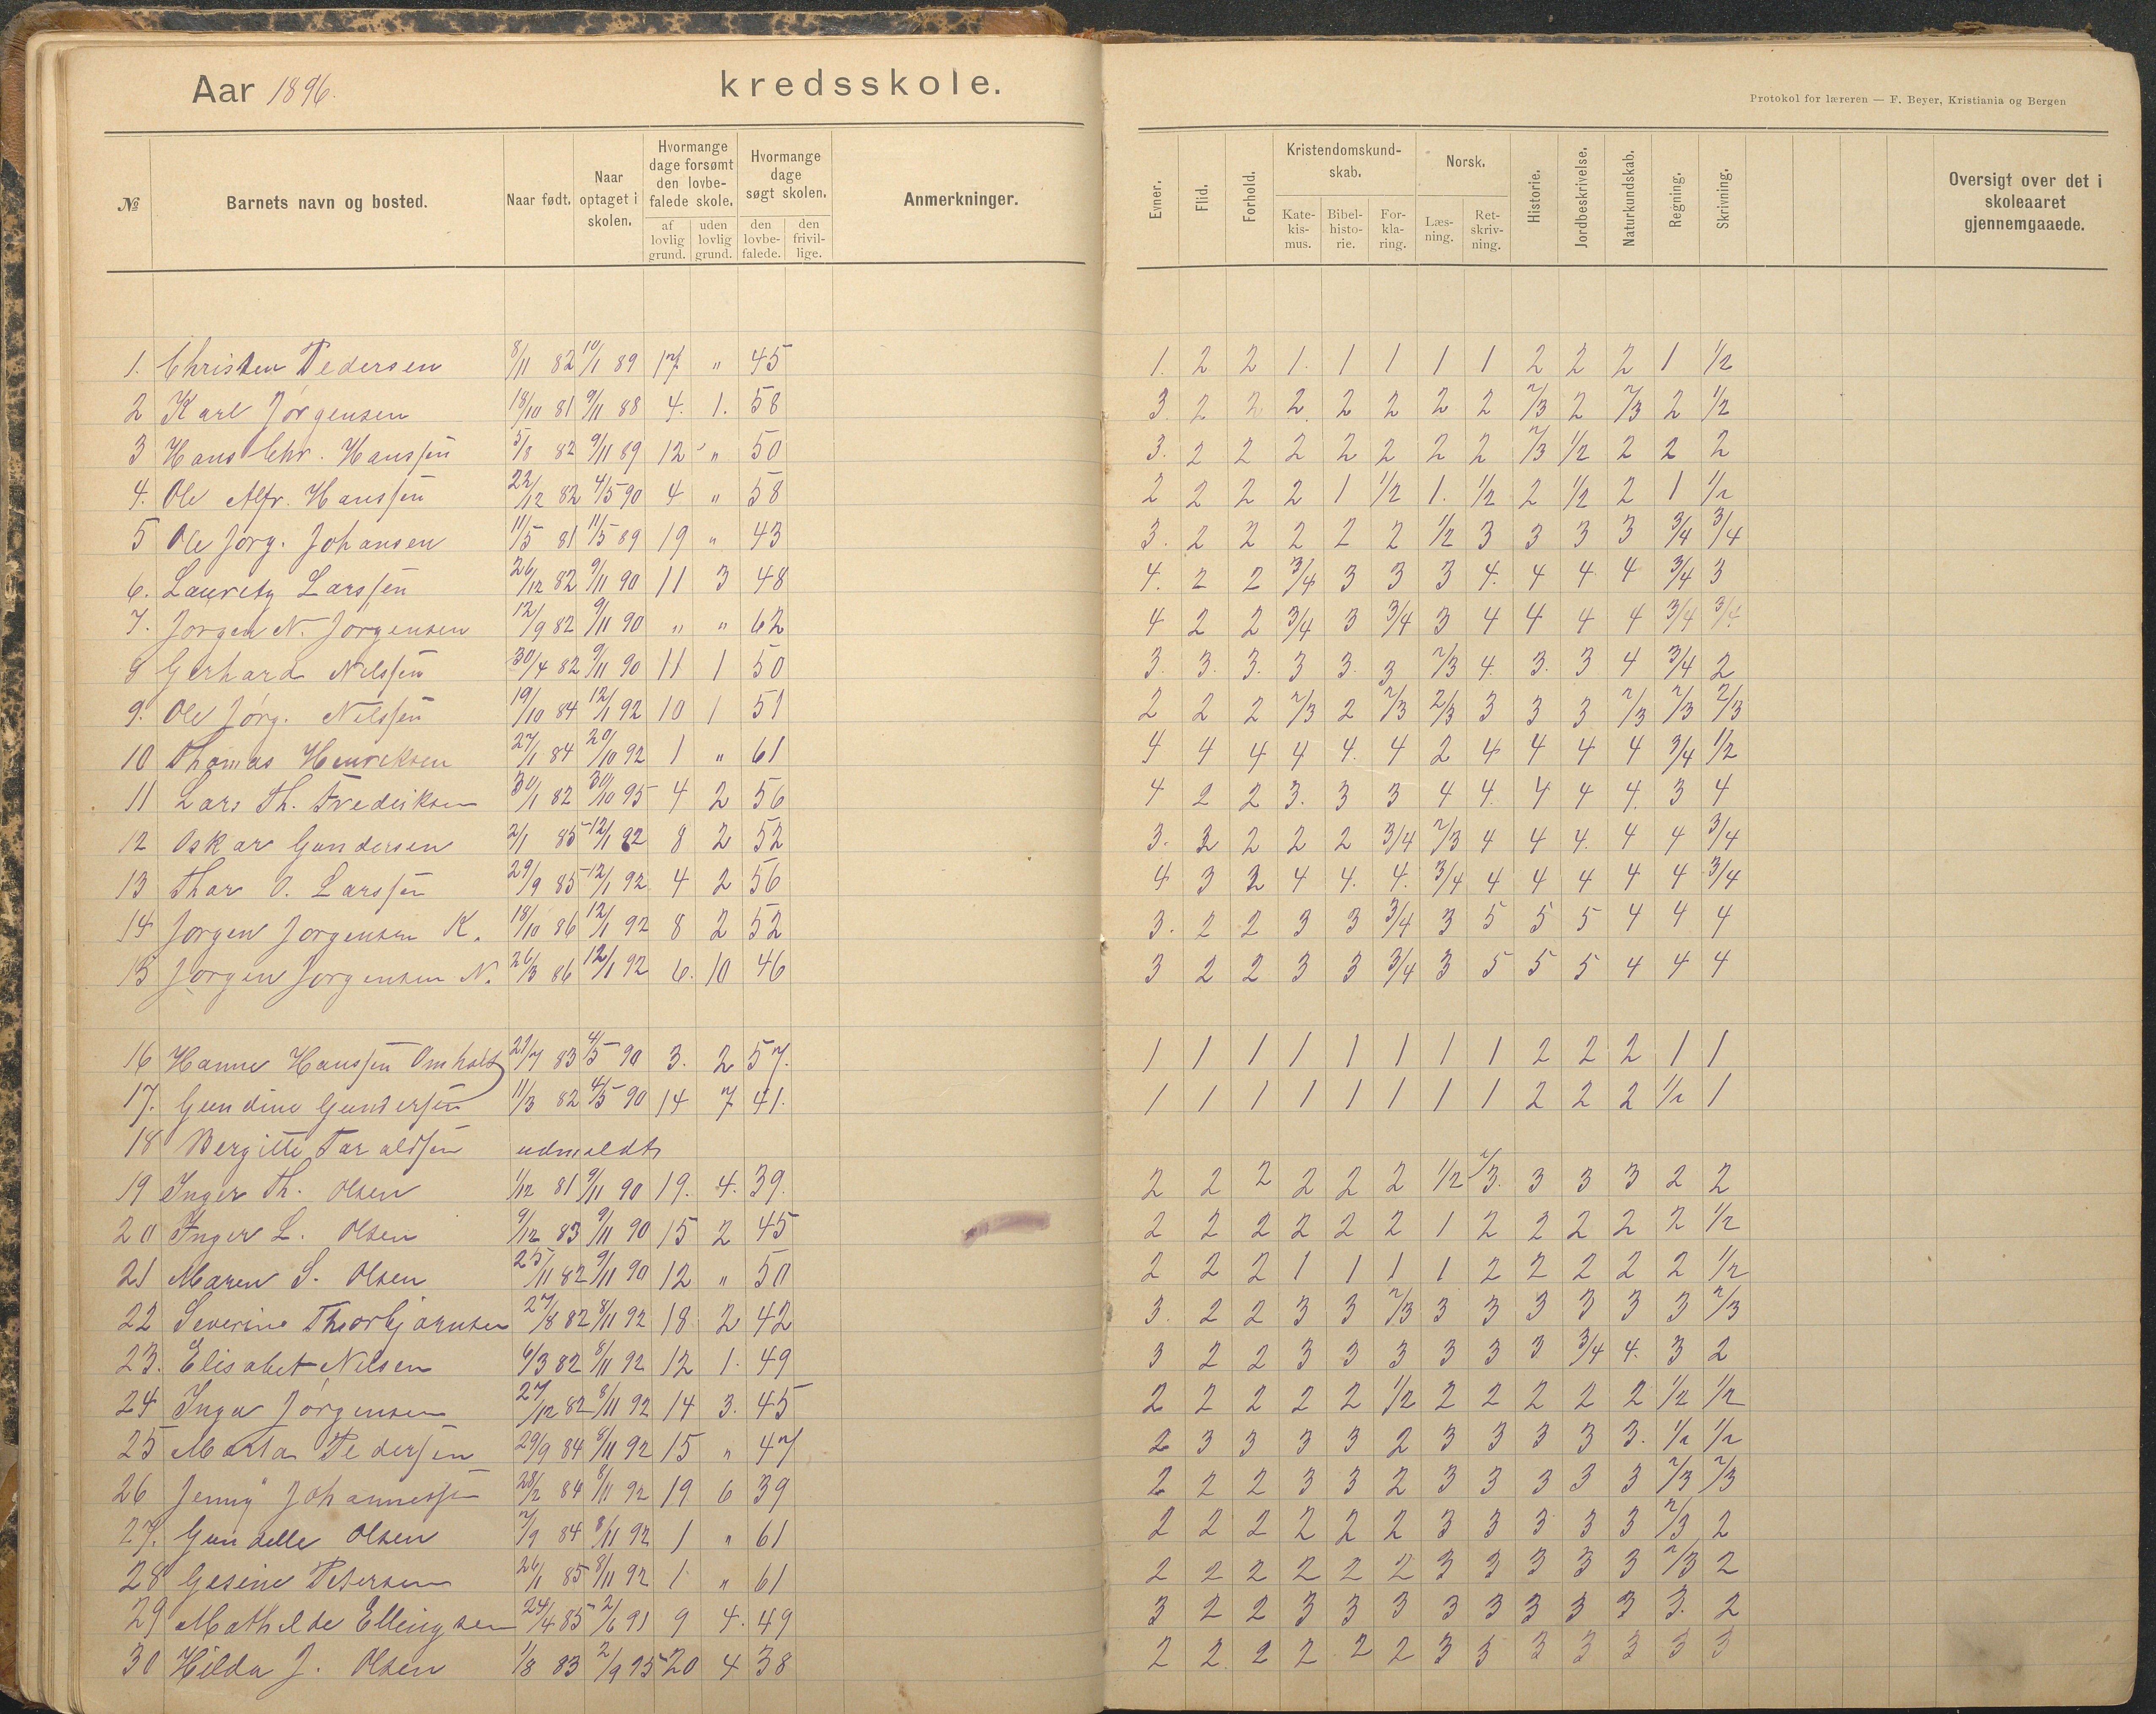 Aar 1896.
kredsskole.
Protokol for læreren — F. Beyer, Kristiania og Bergen
№ Barnets navn og bosted. Naar født. Naar optaget i skolen. Hvormange dage forsømt den lovbefalede skole. af lovlig grund. uden lovlig grund. Hvormange dage søgt skolen. den lovbefalede. den frivillige. Anmerkninger. Evner. Flid. Forhold. Kristendomskundskab. Katekismus. Bibelhistorie. Forklaring. Norsk. Læsning. Retskrivning. Historie. Jordbeskrivelse. Naturkundskab. Regning. Skrivning. Oversigt over det i skoleaaret gjennemgaaede.
1. Christen Pedersen 8/11 82 10/1 89 17 " 45 1. 2 2 1. 1 1 1 1 2 2 2 1 1/2
2 Karl Jørgensen 18/10 81 9/11 88 4. 1. 58 3. 2 2 2 2 2 2 2 2/3 2 2/3 2 1/2
3 Hans Chr. Hanssen 5/8 82 9/11 89 12 " 50 3. 2 2 2 2 2 2 2 2/3 1/2 2 2 2
4. Ole Alfr. Hanssen 22/12 82 4/5 90 4 " 58 2 2 2 2 1 1/2 1. 1/2 2 1/2 2 1 1/2
5 Ole Jørg. Johansen 11/5 81 11/5 89 19 " 43 3. 2 2 2 2 2 1/2 3 3 3 3 3/4 3/4
6. Lauritz Larssen 26/12 82 9/11 90 11 3 48 4. 2 2 3/4 3 3 3 4. 4 4 4 3/4 3
7. Jørgen N. Jørgensen 12/9 82 9/11 90 " " 62 4 2 2 3/4 3 3/4 3 4 4 4 4 3/4 3/4
8 Gerhard Nilssen 30/4 82 9/11 90 11 1 50 3. 3. 3. 3 3. 3 2/3 4. 3. 3 4 3/4 2
9. Ole Jørg. Nilssen 19/10 84 12/1 92 10 1 51 2 2 2 2/3 2 2/3 2/3 3 3 3 2/3 2/3 2/3
10 Thomas Henriksen 27/1 84 20/10 92 1 " 61 4 4 4 4 4. 4 2 4 4 4 4 3/4 1/2
11 Lars Th. Frederiksen 30/1 82 30/10 95 4 2 56 4 2 2 3. 3 3 4 4. 4 4 4. 3 4
12 Oskar Gundersen 2/1 85 12/1 92 8 2 52 3. 3 2 2 2 3/4 2/3 4 4 4. 4 4 3/4
13 Thor O. Larssen 29/9 85 12/1 92 4 2 56 4 3 2 4 4. 4. 3/4 4 4 4 4 4 3/4
14 Jørgen Jørgensen K. 18/10 86 12/1 92 8 2 52 3. 2 2 3 3 3/4 3 5 5 5 4 4 4
15 Jørgen Jørgensen N. 26/3 86 12/1 92 6. 10 46 3 2 2 3 3 3/4 3 5 5 5 4 4 4
16 Hanne Hanssen Omholt 21/7 83 4/5 90 3. 2 57. 1 1 1 1 1 1 1 1 2 2 2 1 1
17. Gundine Gundersen 11/3 82 4/5 90 14 7 41. 1 1 1 1 1 1 1 1 2 2 2 1/2 1
18 Bergitte Taraldsen udmeldt
19 Inger Th. Olsen 1/12 81 9/11 90 19. 4. 39. 2 2 2 2 2 2 1/2 2/3. 3 3 3 2 2
20 Inger L. Olsen 9/12 83 9/11 90 15 2 45 2 2 2 2 2 2 1 2 2 2 2 2 1/2
21 Maren S. Olsen 25/11 82 9/11 90 12 " 50 2 2 2 1 1 1 1 2 2 2 2 2 1/2
22 Severine Thorbjørnsen 27/8 82 8/11 92 18 2 42 3. 2 2 3 3 2/3 3 3 3 3 3 3 2/3
23. Elisabet Nilsen 6/3 82 8/11 92 12 1. 49 3 2 2 3 3 3 3 3 3 3/4 4. 3 2
24 Inga Jørgensen 27/12 82 8/11 92 14 3. 45 2 2 2 2 2 1/2 2 2 2 2 2 1/2 1/2
25 Marta Pedersen 29/9 84 8/11 92 15 " 47 2 3 3 3 3 2 3 3 3 3 3. 1/2 1/2
26 Jenny Johannessen 28/2 84 8/11 92 19 6 39 2 2 2 3 3 2 3 3 3 3 3 2/3 2/3
27. Gundelle Olsen 7/9 84 8/11 92 1 " 61 2 2 2 2 2 2 3 3 3 3 3 2/3 2
28 Gesine Petersen 26/1 85 8/11 92 1 " 61 2 2 2 2 2 2 3 3 3 3 3 2/3 2
29 Mathilde Ellingsen 24/4 85 2/6 91 9 4. 49 3 2 2 3 3 3 3 3 3 3 3 3. 2
30 Hilda J. Olsen 1/8 83 2/9 95 20 4 38 2 2 2 2 2 2 3 3 3 3 3 3 3